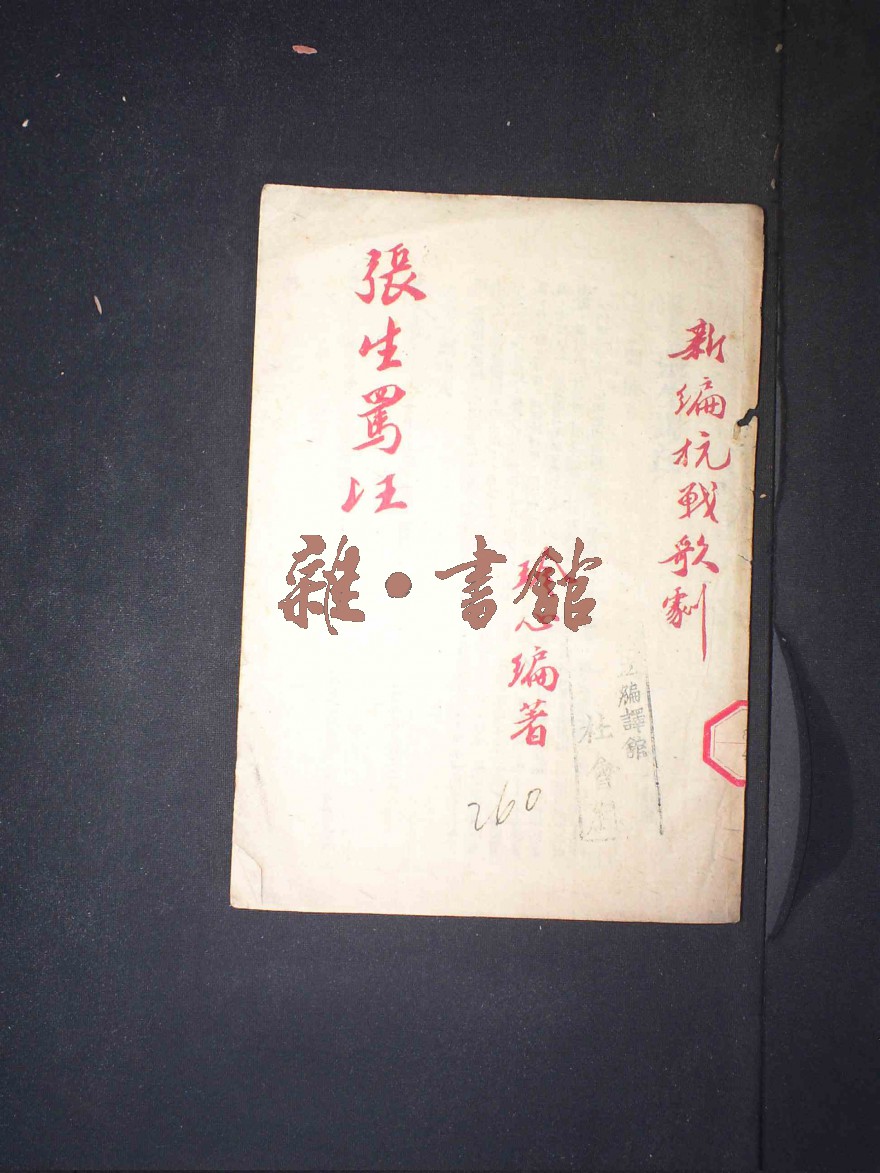 新編抗戰歌劇
編譯館
社會
心編著
張生罵汪
雜·書館
260